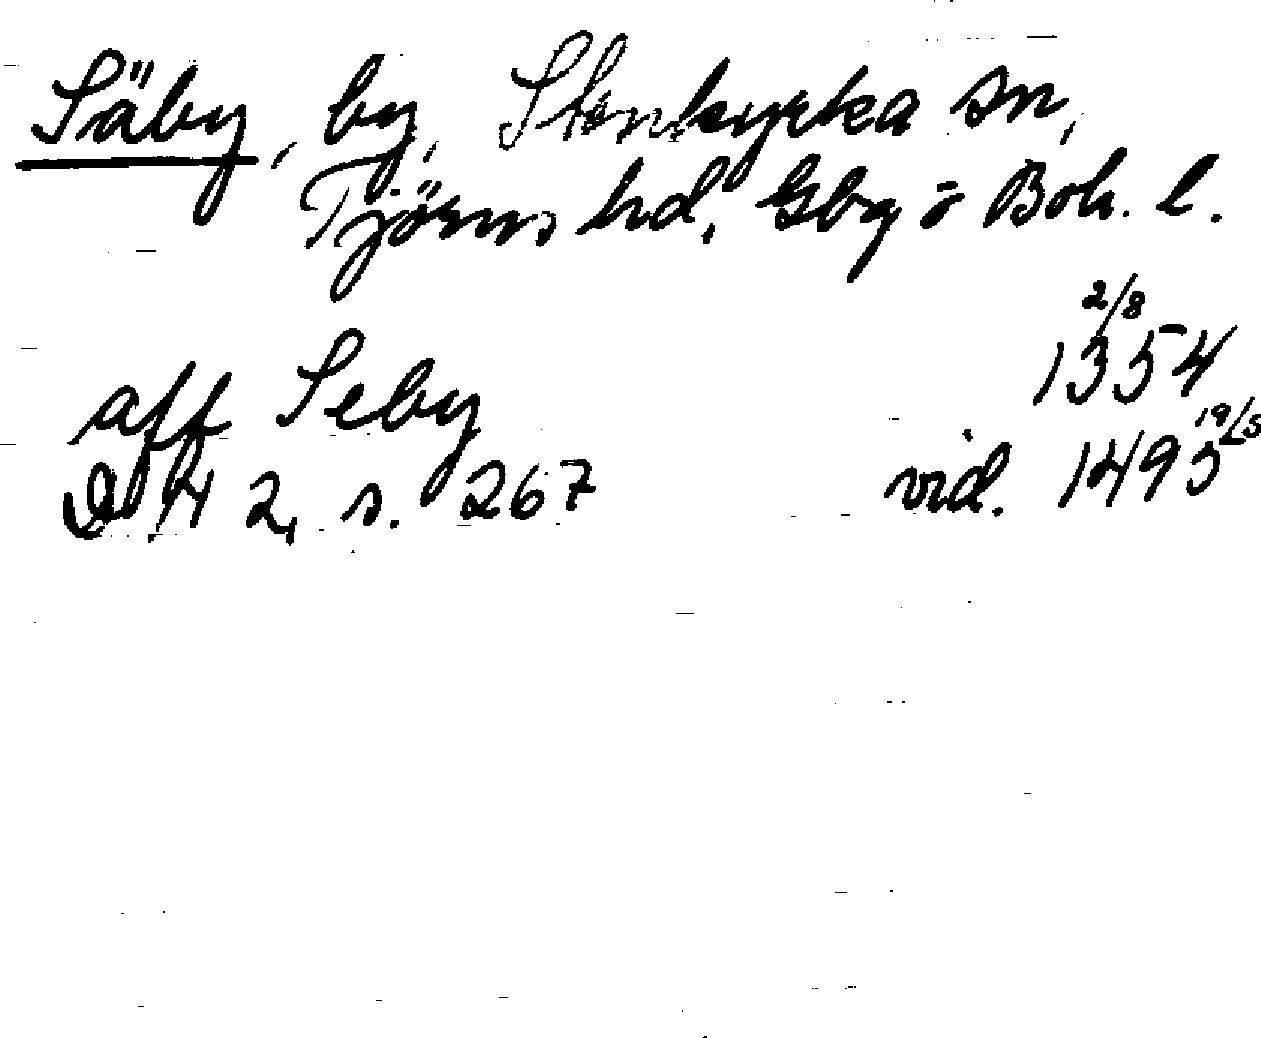 Säby, by, Stenkyrka sn,
Tjörns hd, Gbg o Boh. l.
2/8
aff Seby 1354
19/5
DN 4 2, s. 267 vid. 1495